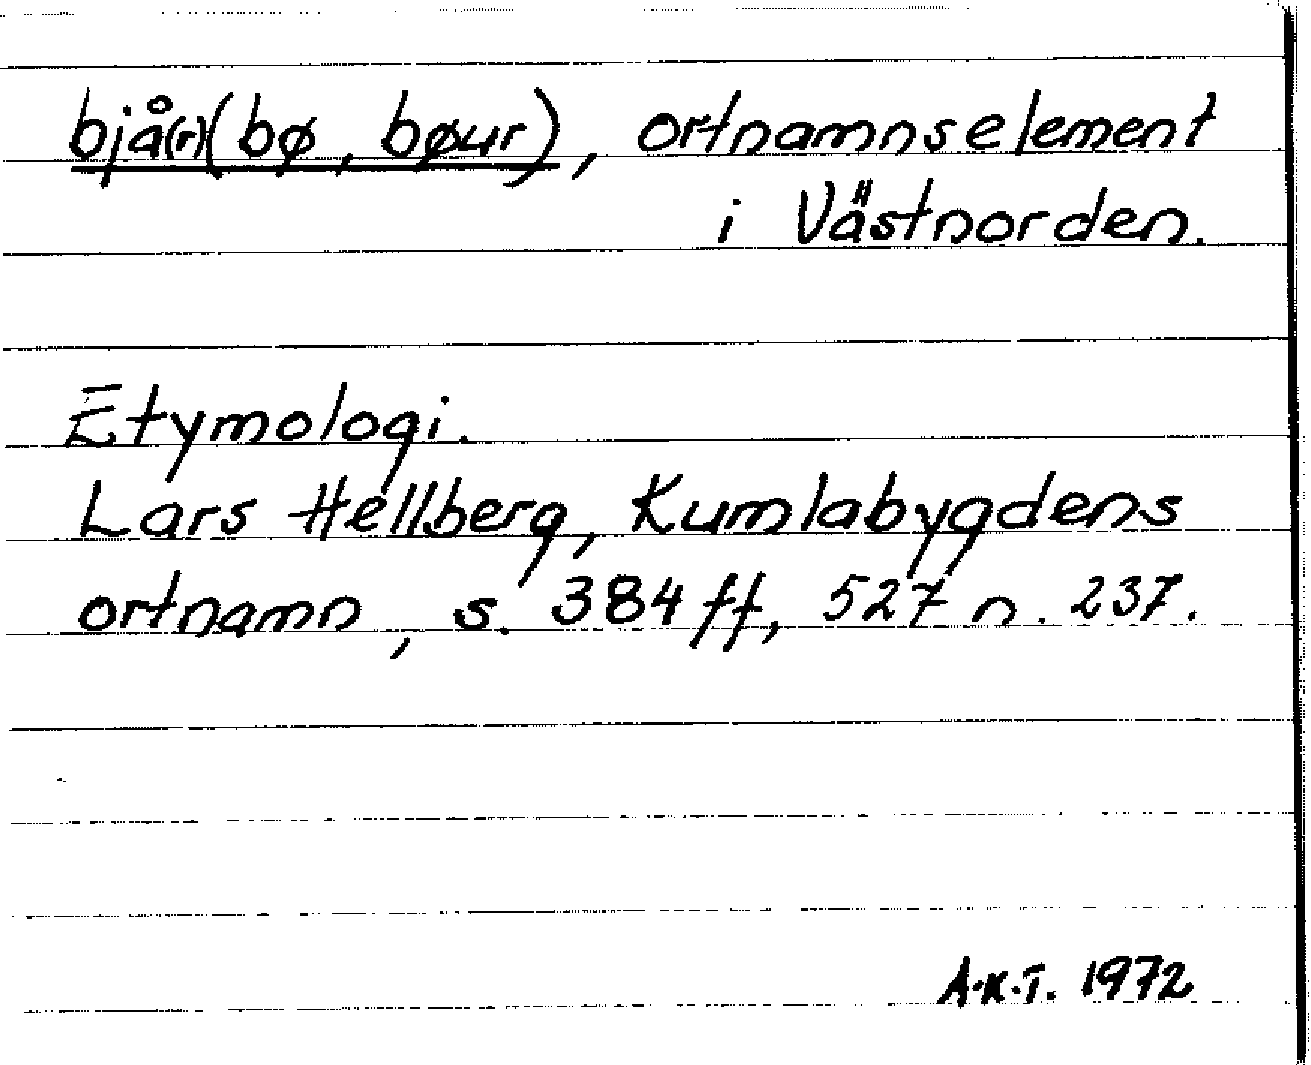 bjå(r)(bø, bøur), ortnamnselement
i Västnorden.
Etymologi.
Lars Hellberg, Kumlabygdens
ortnamn, s. 384 ff, 527 n. 237.
A.K.T. 1972